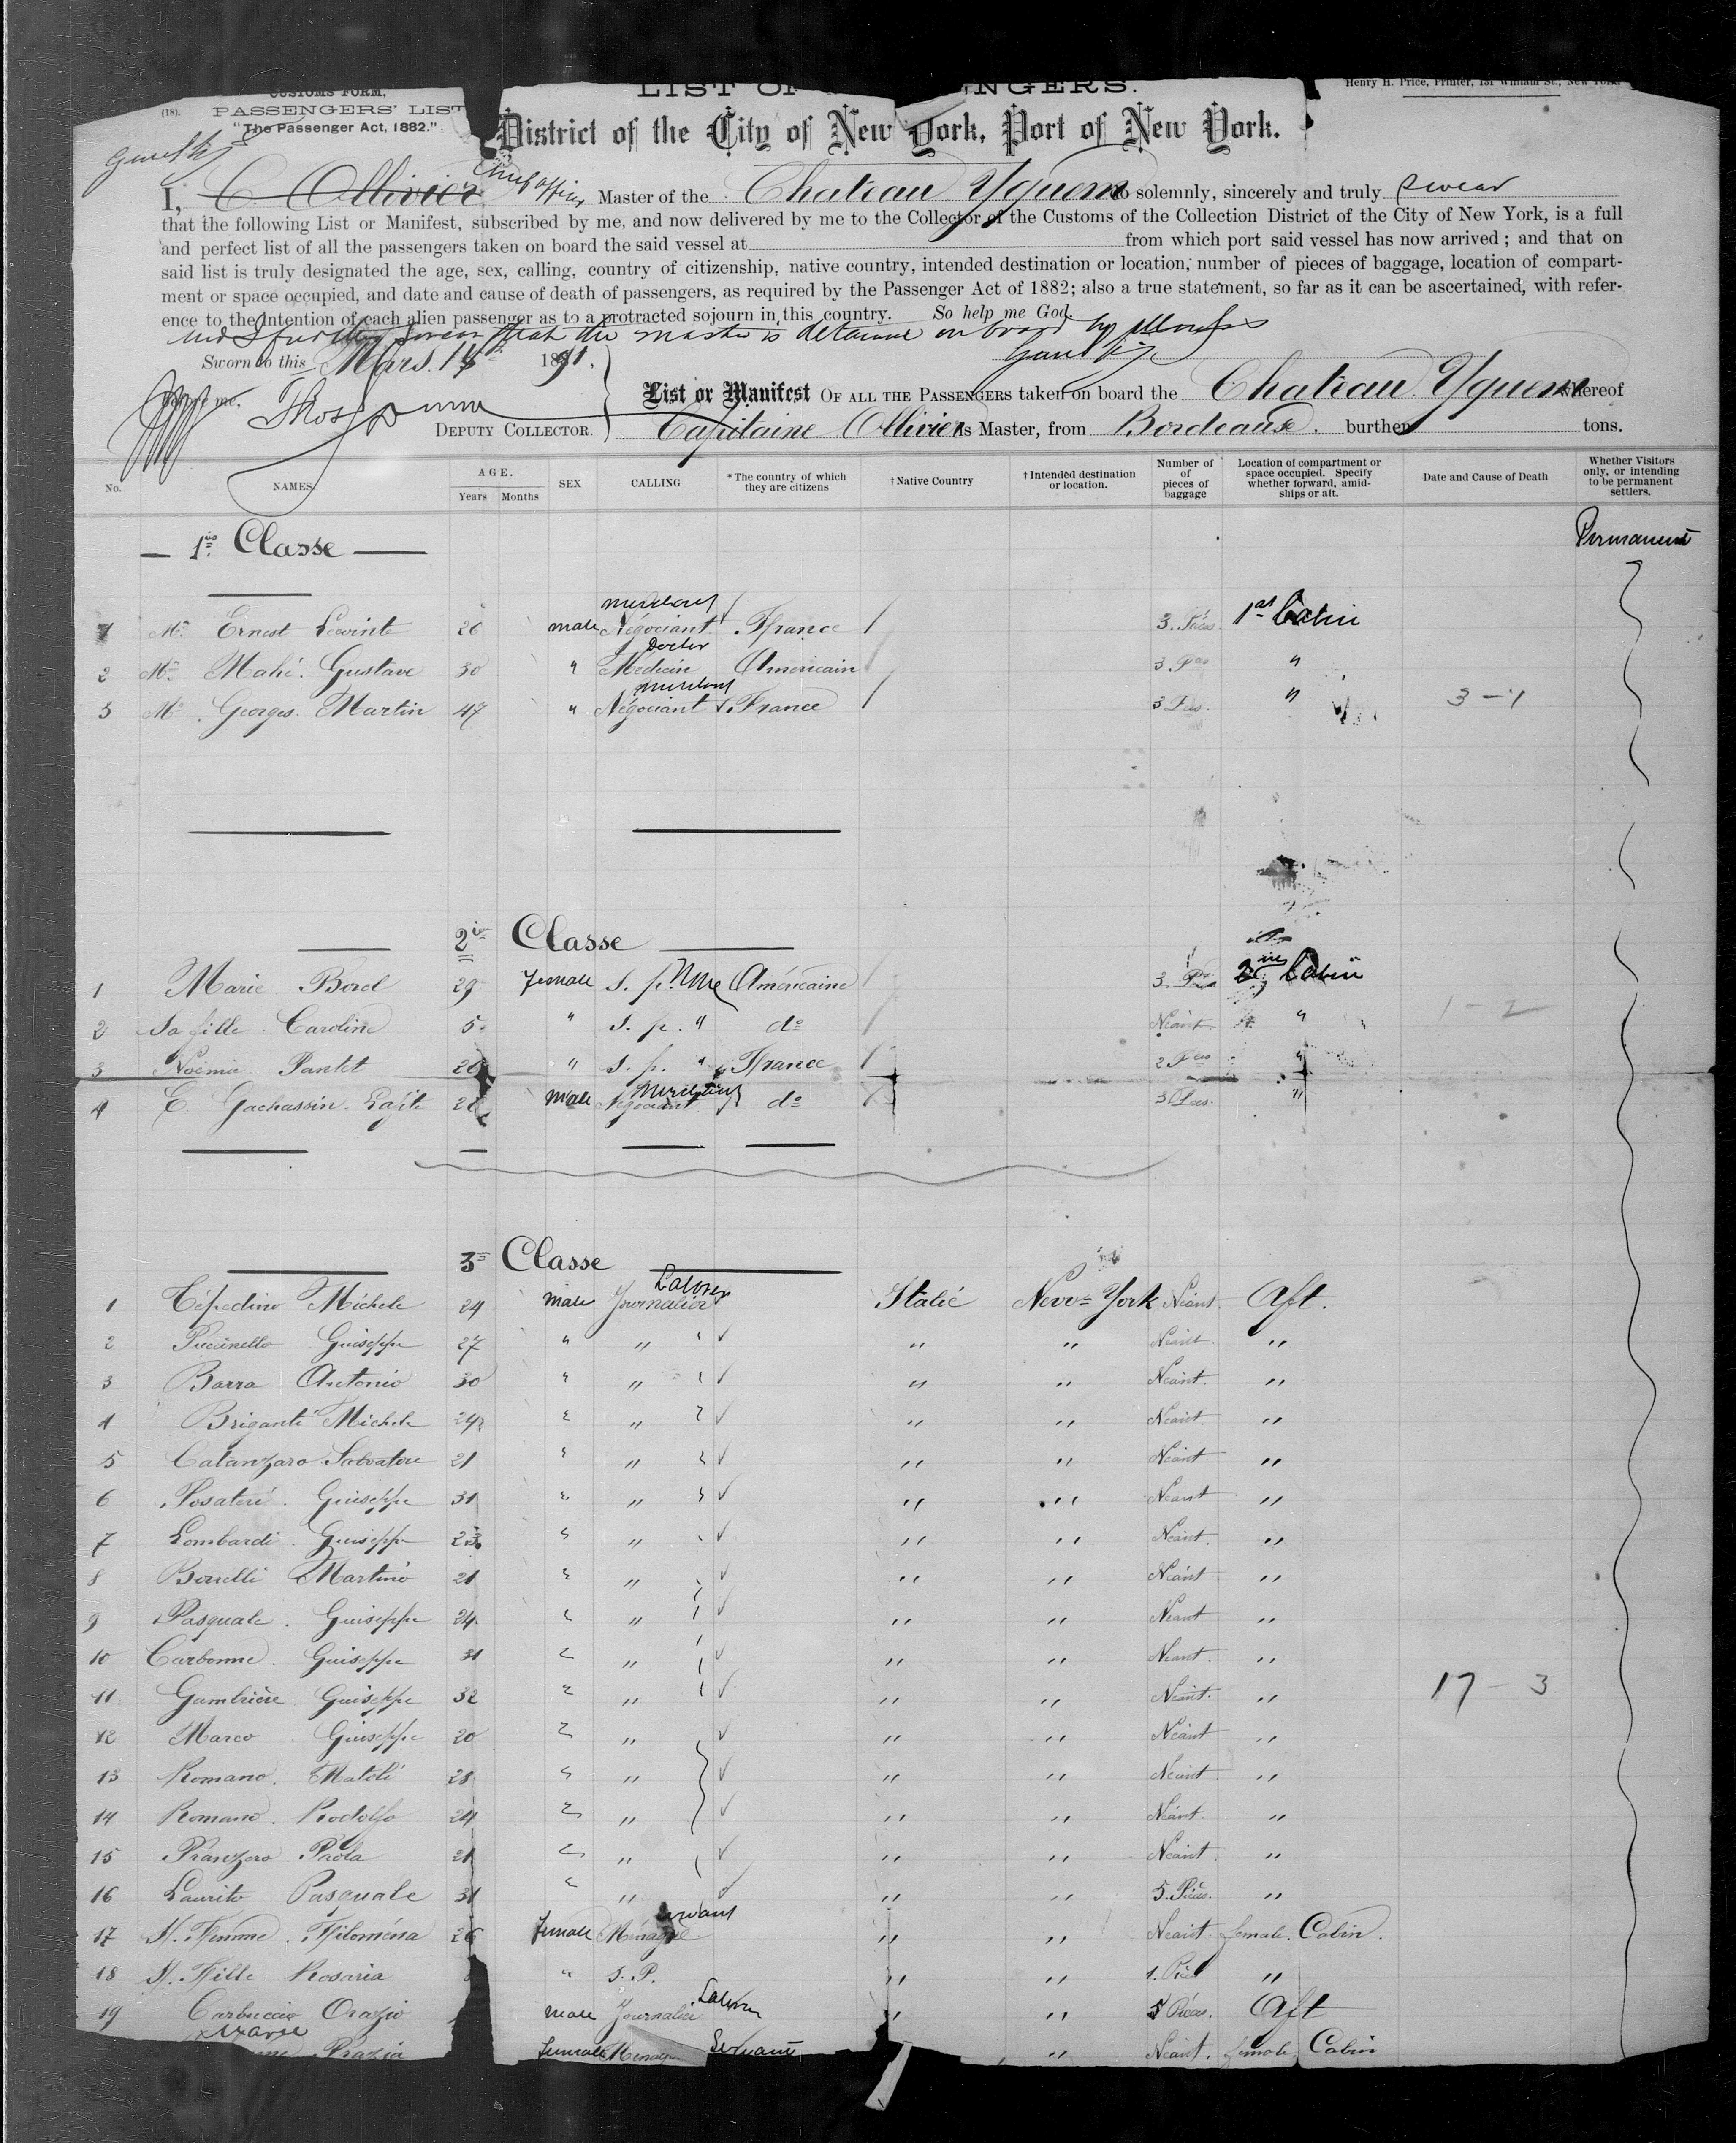 CUSTOMS FORM,
(18). PASSENGERS' LIST
"The Passenger Act, 1882."
LIST OF NGERS.
Henry H. Price, Printer, 131 William St., New York
District of the City of New York, Port of New York.
I, C Ollivier Chief officer Master of the Chateau Yquem do solemnly, sincerely and truly swear
that the following List or Manifest, subscribed by me, and now delivered by me to the Collector of the Customs of the Collection District of the City of New York, is a full
and perfect list of all the passengers taken on board the said vessel at from which port said vessel has now arrived; and that on
said list is truly designated the age, sex, calling, country of citizenship, native country, intended destination or location, number of pieces of baggage, location of compart-
ment or space occupied, and date and cause of death of passengers, as required by the Passenger Act of 1882; also a true statement, so far as it can be ascertained, with refer-
ence to the intention of each alien passenger as to a protracted sojourn in this country. So help me God.
and I further swear that the master is detained on board by illness
Sworn to this Mars. 1891.
before me, Thos
DEPUTY COLLECTOR.
List or Manifest OF ALL THE PASSENGERS taken on board the Chateau Yquem whereof
Capitaine Ollivier is Master, from Bordeaux. burthen tons.
No. NAMES. AGE. Years Months SEX CALLING *The country of which they are citizens †Native Country †Intended destination or location. Number of of pieces of baggage Location of compartment or space occupied. Specify whether forward, amid-ships or aft. Date and Cause of Death Whether Visitors only, or intending to be permanent settlers.
1re Classe Permanent
merchant
1 Mr Ernest Lecointe 26 male Négociant France 3. Pces 1st Cabin
Doctor
2 Mr Mahé. Gustave 30 " Médecin Américain 3. Pces "
merchant
3 Mr Georges Martin 47 " Négociant France 3 Pces. " 3 - 1
2e Classe
1 Marie Borel 29 female s. p. None Américaine 3. Pces 2me Cabin
2 Sa fille Caroline 5. " s. p. " do Néant. " 1 - 2
3 Noémie Pantet 26 " s. p. " France 2 Pces "
Merchant
4 E. Gachassin. Lafite 2 Male Négociant do 3 Pces. "
3e Classe
Laborer
1 Tépedino Michele 24 Male Journalier Italie New-York Néant. Aft.
2 Puccinello Guiseppe 27 " " " " " Néant. "
3 Barra Antonio 30 " " " " " Néant. "
4 Briganti Michele 24 " " " " " Néant. "
5 Catanzaro Salvatore 21 " " " " " Néant "
6 Posateri. Guiseppe 31 " " " " " Néant "
7 Lombardi. Guiseppe 23 " " " " " Néant. "
8 Borrelli Martino 21 " " " " " Néant "
9 Pasquale. Guiseppe 24 " " " " " Néant "
10 Carbonne. Guiseppe 31 " " " " " Néant. "
11 Gambrière Guiseppe 32 " " " " " Néant. " 17 - 3
12 Marco Guiseppe 20 " " " " Néant "
13 Romano. Mateli 28 " " " " Néant "
14 Romano. Rodolfo 24 " " " " Néant. "
15 Franzero Paola 21 " " " " Néant "
16 Laurito Pasquale 31 " " " " 5. Pièces. "
Servant
17 S. Femme. Filoména 26 female Ménagère " " Néant. female. Cabin.
18 S. Fille Rosaria " S. P. " " 1. Pièce "
Laborer
19 Carbuccio Orazio male Journalier " " 5 Pièces. Aft
Grazia female Servant " Néant. female, Cabin